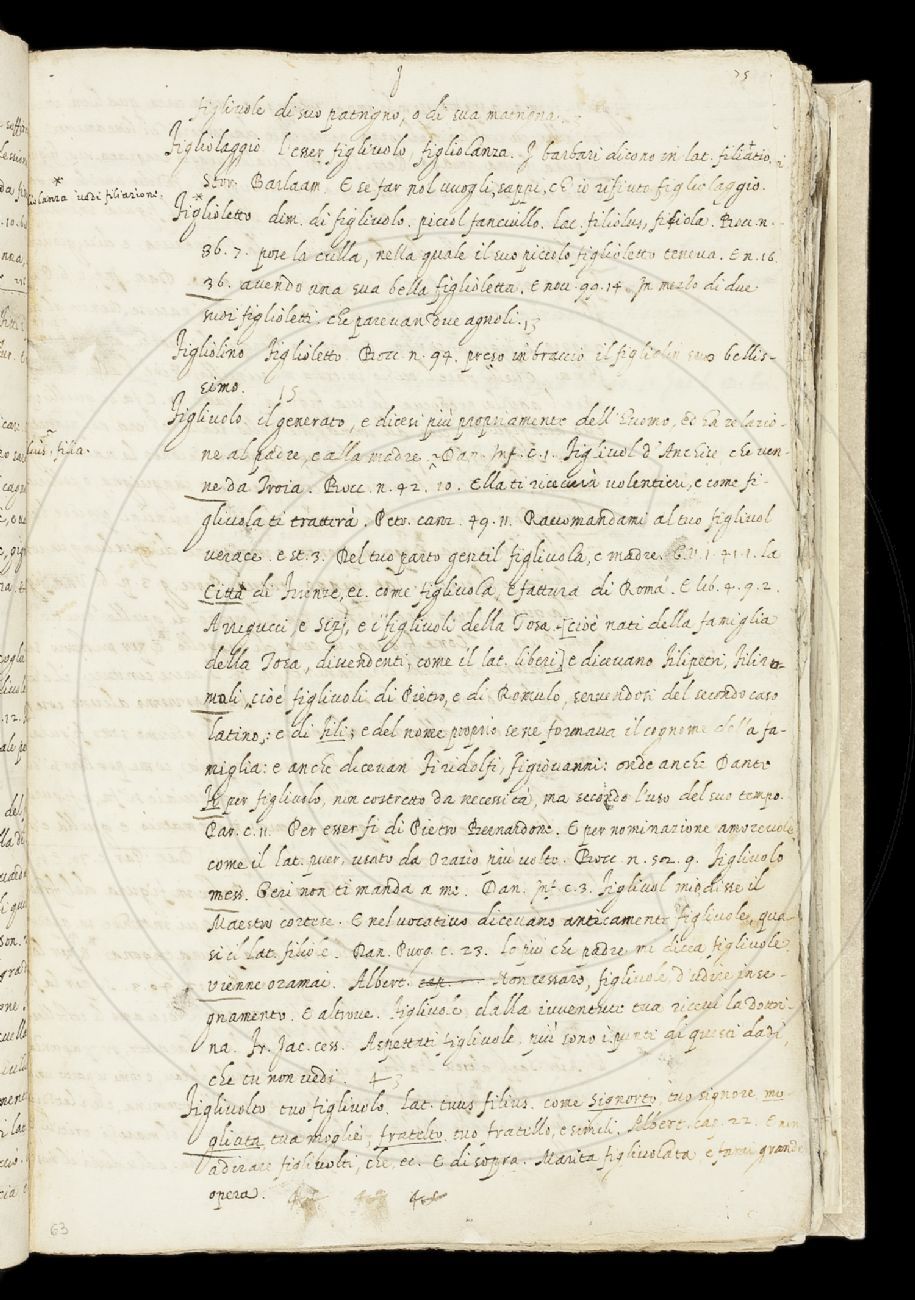 f
75
figlivole di suo patrigno, o di sua matrigna.
Figliolaggio l'esser figlivolo, figliolanza. I barbari dicono in lat. filiatio,
Stor. Barlaam. E se far nol vuogli, sappi, ch' io rifiuto figliolaggio.
*
figliolanza vedi filiazione.
Figlioletto dim. di figlivolo. piccol fanciullo. lat. filiolus, filiola. Bocc. n.
36. 7. pose la culla, nella quale il suo piccolo figlioletto teneva. E n. 16.
36. avendo una sua bella figlioletta. E nov. 99. 14. In mezzo di due
suoi figlioletti, che parevan due agnoli. 13
Figliolino Figlioletto. Bocc. n. 94. preso in braccio il figliolin suo bellis-
simo. 15
Figlivolo il generato, e dicesi più propriamente dell' huomo, et ha relazio-
ne al padre, e alla madre. Dan. Inf. c. 1. Figlivol d'Anchise, che ven-
filia.
ne da Troia. Bocc. n. 42. 10. Ella ti riceverà volentieri, e come fi-
glivola ti tratterà. Petr. canz. 49. 11. Raccomandami al tuo figlivol
verace. e st. 3. Del tuo parto gentil figlivola, e madre. G.V. 1. 41. 1. la
Città di Firenze, ec. come figlivola, e fattura di Roma. E lib. 4. 9. 2.
Arrigucci, e Sizj, e i figlivoli della Tosa [cioè nati della famiglia
della Tosa, discendenti, come il lat. liberi] e dicevano Filipetri, Filiro-
moli, cioè figlivoli di Pietro, e di Romulo, servendosi del secondo caso
latino: e di fili; e del nome proprio se ne formava il cognome della fa-
miglia: e anche dicevan Firidolfi, Figiovanni: onde anche Dante
Fi per figlivolo, non costretto da necessità, ma secondo l'uso del suo tempo.
Par. c. 11. Per esser fi di Pietro Bernardone. E per nominazione amorevole
come il lat. puer, usato da Orazio più volte. Bocc. n. 502. 9. Figlivolo
mess. Geri non ti manda a me. Dan. Inf. c. 3. Figlivol mio disse il
Maestro cortese. E nel vocativo dicevano anticamente figlivole, qua-
si il lat. filiole. Dan. Purg. c. 23. Lo più che padre mi dicea figlivole
vienne oramai. Albert. Non cessare, figlivole, d'udire inse-
gnamento. E altrove. Figlivole, dalla iuventute tua ricevi la dottri-
na. Fr. Jac. Cess. Aspettati figlivole, più sono i punti di questi dadi,
che tu non vedi. 43
Figlivolto tuo figlivolo. lat. tuus filius. come Signorto, tuo signore, mo-
gliata, tua moglie, fratelto, tuo fratello, e simili. Albert. cap. 22. E non
adirare figlivolti, che, ec. E di sopra. Marita figlivolata e farai grande
opera.
63